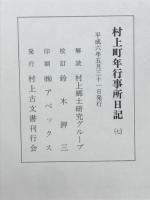 村上町年行事所日記 (七)
平成六年五月三十一日発行
解読 村上郷土研究グループ
校訂 鈴木鉀三
印刷 ㈱アペックス
発行 村上古文書刊行会